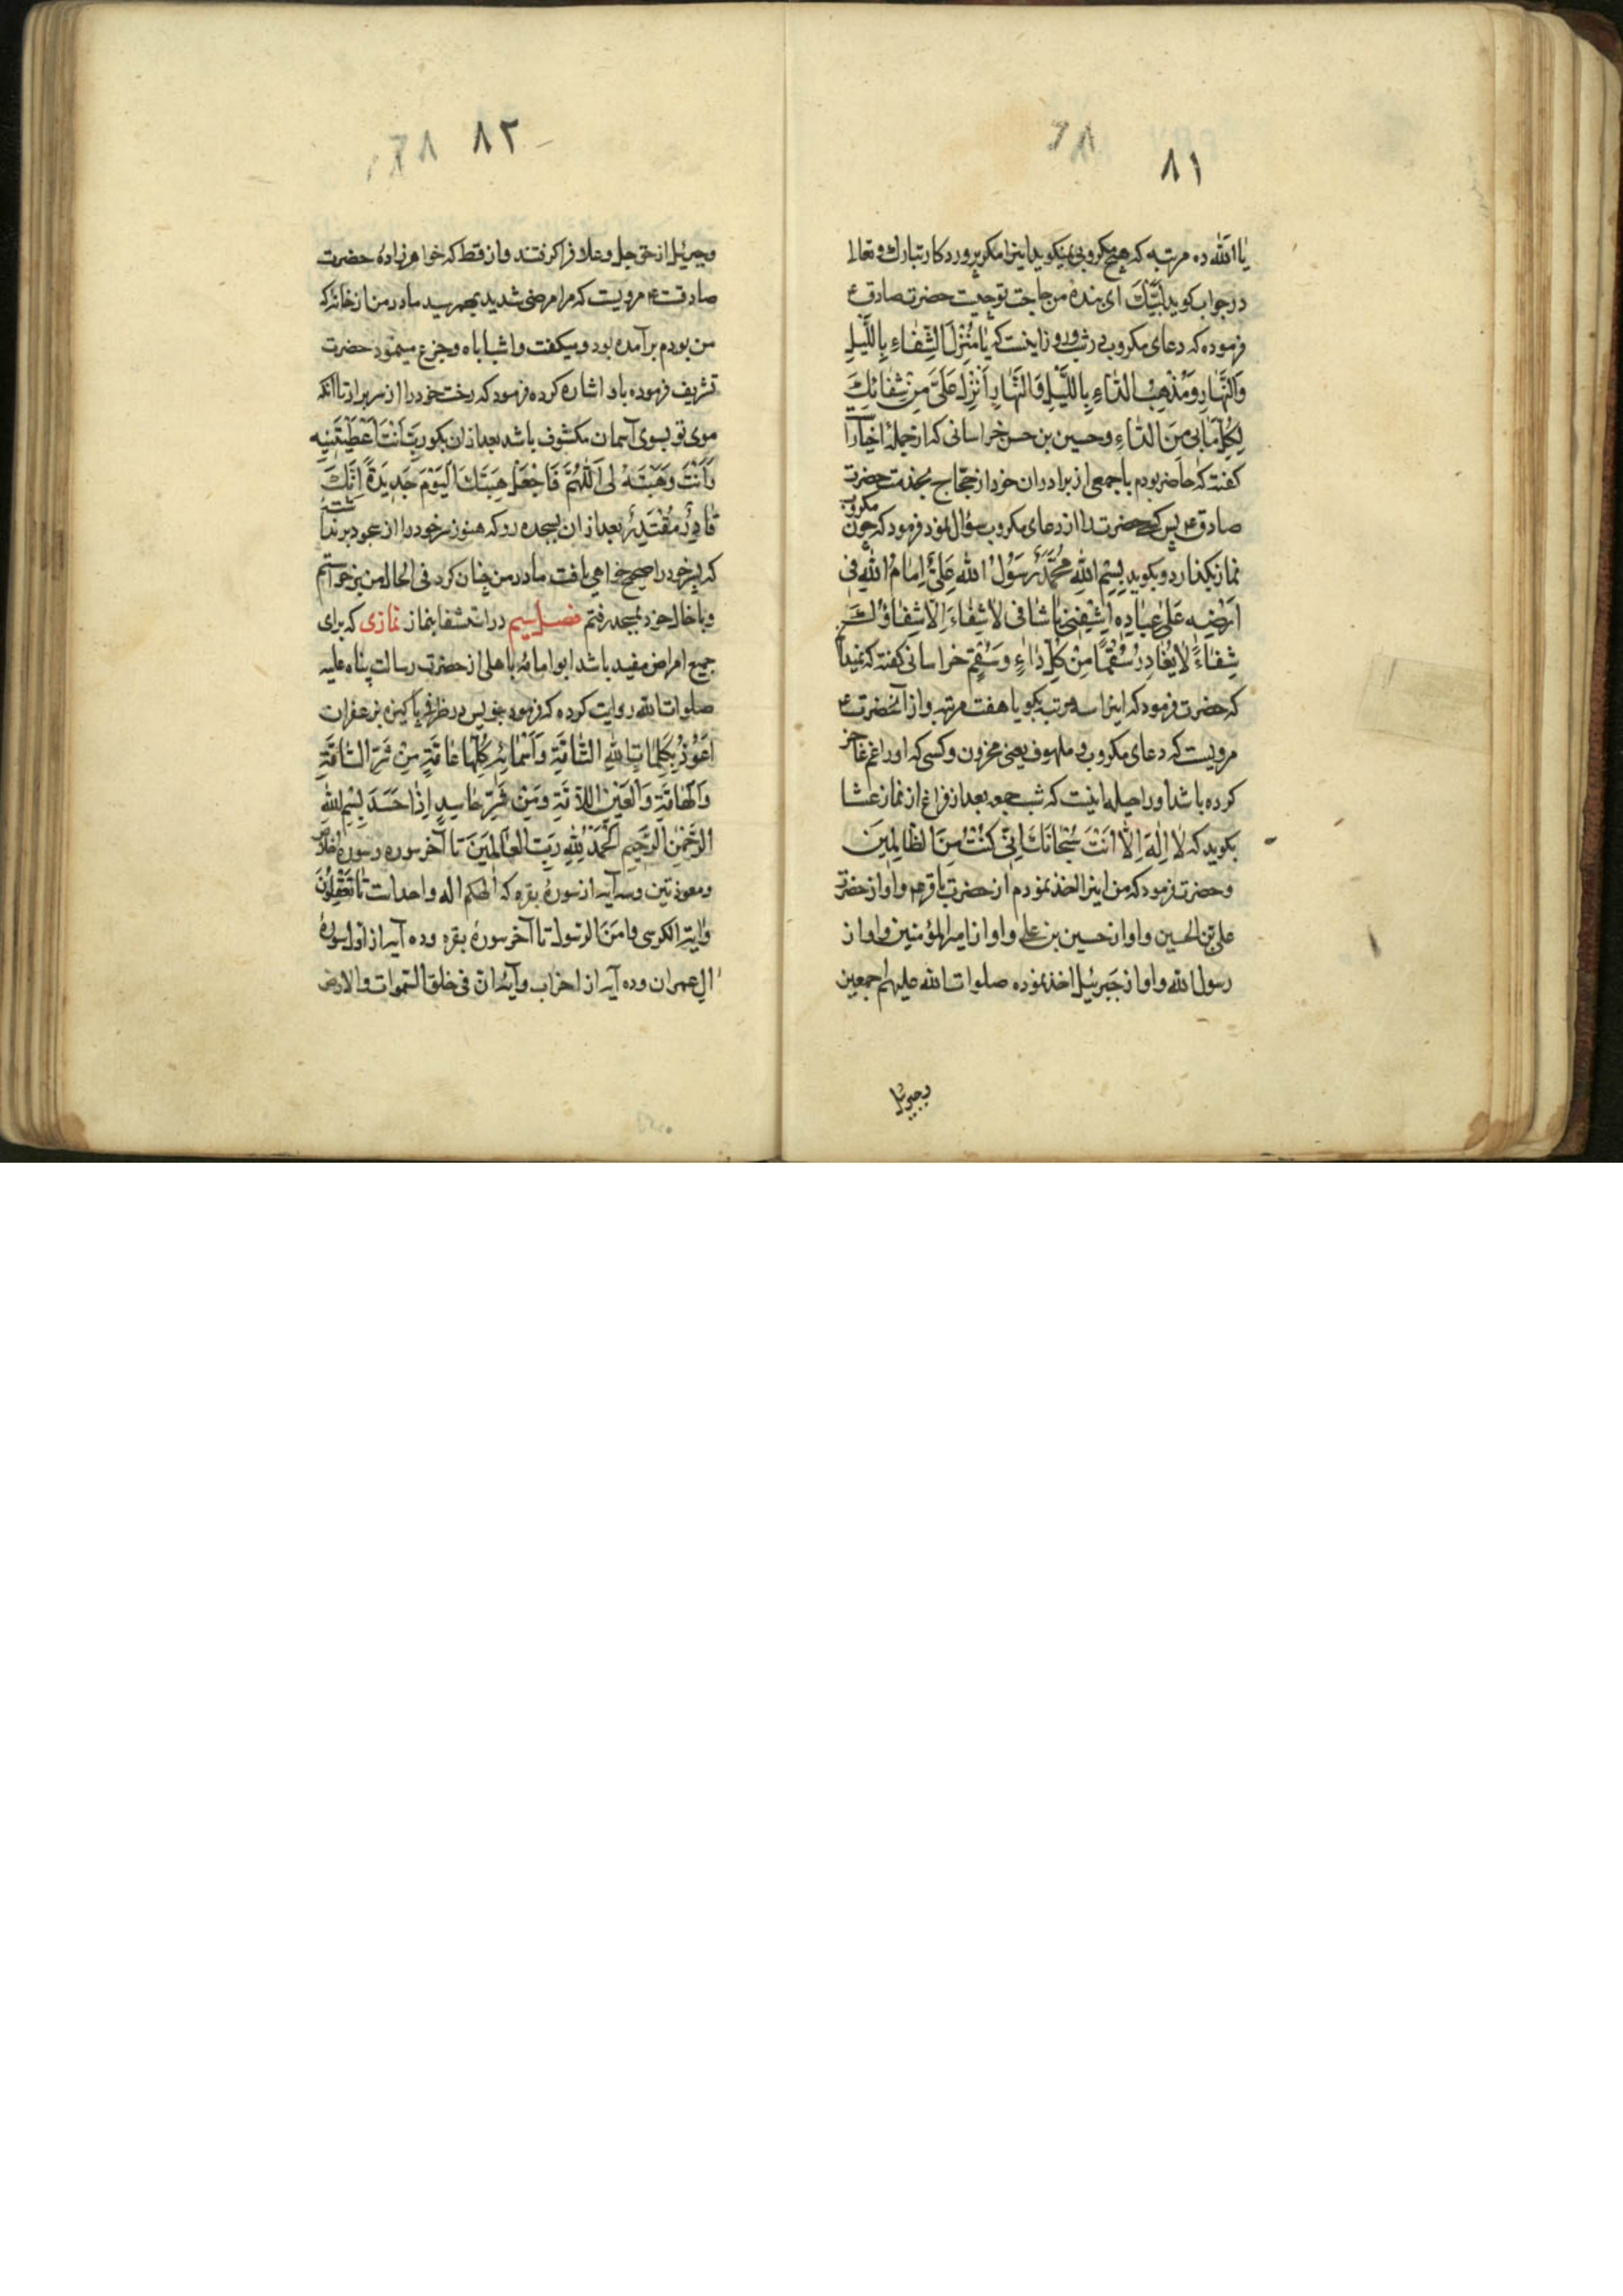 ۸۱
یا الله ده مرتبه که هیچ مکروبی نمیکوید اینرا مکر پروردکار تبارک و تعالی
در جواب کوید لَبَّیْکَ ای بندۀ من حاجت تو چیست حضرت صادق ع
فرموده که دعای مکروب در شب و روز اینست که یٰا مُنْزِلَ الشِّفٰاءِ بِاللَّیْلِ
وَالنَّهٰارِ وَمُذْهِبَ الدّٰاءِ بِاللَّیْلِ وَالنَّهٰارِ اَنْزِلْ عَلَیَّ مِنْ شِفٰائِکَ
لِکُلِّ مٰا بی مِنَ الدّٰاءِ وحسین بن حسن خراسانی که از جملۀ اخیار
کفته که حاضر بودم با جمعی از برادران خود از حجّاج بخدمت حضرت
صادق ع پس حضرت را از دعای مکروب سؤال نمود فرمود که چون مکروب
نماز بکذارد و بکوید بِسْمِ اللهِ مُحَمَّدٌ رَسُوْلُ اللهِ عَلِیٌّ اِمٰامُ اللهِ فی
اَرْضِهِ عَلیٰ عِبٰادِهِ اِشْفِنی یٰا شٰافی لاٰ شِفٰاءَ اِلّاٰ شِفٰاؤُکَ
شِفٰاءً لاٰ یُغٰادِرُ سُقْمًا مِنْ کُلِّ دٰاءٍ وَسُقْمٍ خراسانی کفته که نمیدانم
که حضرت فرمود که اینرا سه مرتبه بکو یا هفت مرتبه و از آنحضرت ع
مرویست که دعای مکروب و ملهوف یعنی محزون و کسی که او را غم عاجز
کرده باشد او را حیله اینست که شب جمعه بعد از فراغ از نماز عشا
بکوید که لاٰ اِلٰهَ اِلّاٰ اَنْتَ سُبْحٰانَکَ اِنّی کُنْتُ مِنَ الظّٰالِمِینَ
وحضرت فرمود که من اینرا اخذ نمودم از حضرت باقر ع و او از حضرت
علی بن الحسین و او از حسین بن علی و او از امیرالمؤمنین و او از
رسول الله و او از جبرئیل اخذ نموده صلوات الله علیهم اجمعین
وجبرئیل
۸۲
وجبرئیل از حق جل وعلا فرا کرفتند و از قط که خواهرزادۀ حضرت
صادقست ع مرویست که مرا مرضی شدید بهمرسید مادر من از خانه که
من بودم برآمده بود و میکفت واشباباه و جزع مینمود حضرت
تشریف فرموده باو اشاره کرده فرمود که رخت خود را از سر برآر تا آنکه
موی تو بسوی آسمان مکشوف باشد بعد از ان بکو رَبِّ اَنْتَ اَعْطَیْتَنِیهِ
وَاَنْتَ وَهَبْتَهُ لی اَللّٰهُمَّ فَاجْعَلْ هِبَتَکَ الْیَوْمَ جَدِیدَةً اِنَّکَ
قٰادِرٌ مُقْتَدِرٌ بعد از ان بسجده رو که هنوز سر خود را از سجود برنداشته
که پسر خود را صحیح خواهی یافت مادر من چنان کرد فی الحال من برخواستم
و با خال خود بمسجد رفتم فصل سیم در استشفا بنماز نمازی که برای
جمیع امراض مفید باشد ابوامامۀ باهلی از حضرت رسالت پناه علیه
صلوات الله روایت کرده که فرمود بنویس در ظرف پاکیزه بزعفران
اَعُوْذُ بِکَلِمٰاتِ اللهِ التّٰامَّةِ وَاَسْمٰائِهِ کُلِّهٰا عٰامَّةٍ مِنْ شَرِّ السّٰامَّةِ
وَالْهٰامَّةِ وَالْعَیْنِ اللاّٰمَّةِ وَمِنْ شَرِّ حٰاسِدٍ اِذٰا حَسَدَ بِسْمِ اللهِ
الرَّحْمٰنِ الرَّحِیمِ اَلْحَمْدُ لِلّٰهِ رَبِّ الْعٰالَمِینَ تا آخر سوره و سورۀ اخلاص
و معوذتین وسه آیه از سورۀ بقره که الٰهکم اله واحد است تا تَعْقِلُوْنَ
وٰایة الکرسی و اٰمَنَ الرسول تا آخر سورۀ بقره و ده آیه از اول سورۀ
ال عمران و ده آیه از اخر آن و آیۀ ان فی خلق السموات والارض